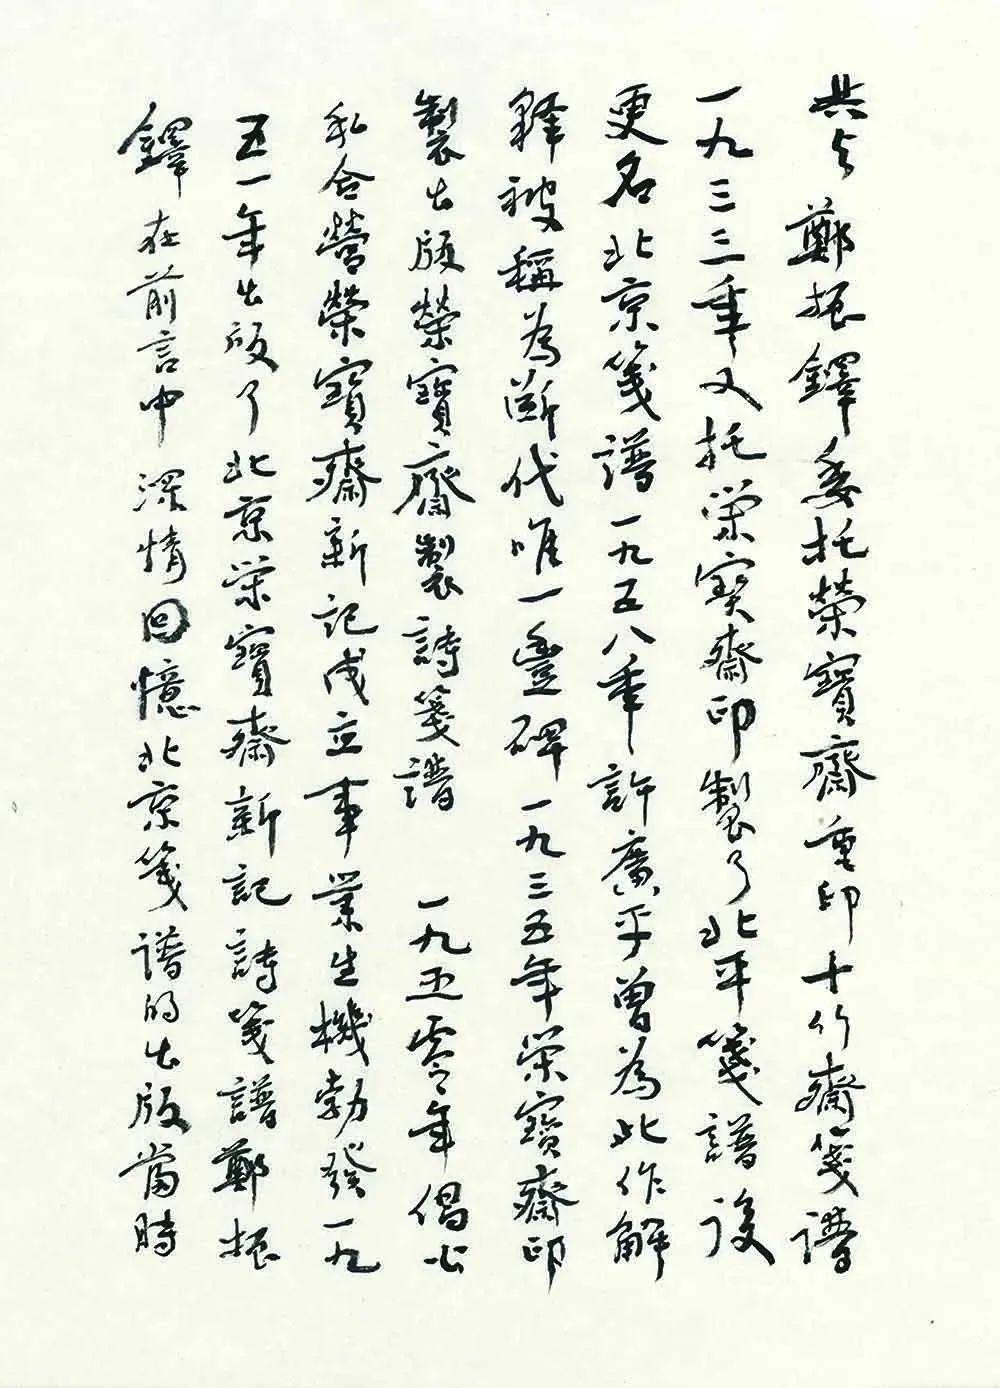 共与鄭振鐸委托榮寶齋重印十竹齋箋譜
一九三三年又托荣寳齋印製了北平箋譜後
更名北京箋譜一九五八年許廣平曾為此作解
釋被稱為断代唯一豐碑一九三五年荣寳齋印
製出版榮寳齋製詩箋譜 一九五零年倡公
私合營榮寳齋新記成立事業生機勃發一九
五一年出版了北京荣寳齋新記詩箋譜鄭振
鐸在前言中深情回憶北京箋譜的出版當時